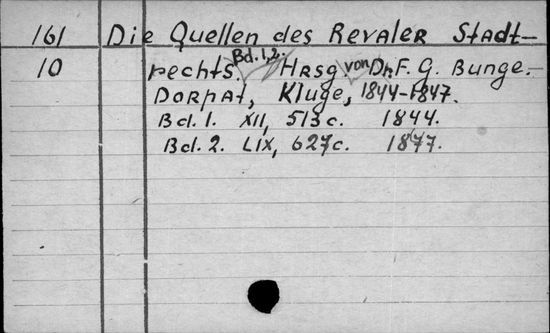 161 Die Quellen des Revaler Stadt-
10 rechts. Bd. 1,2. Hrsg. von Dr. F. G. Bunge.-
Dorpat, Kluge, 1844-1847.
Bd. 1. XII, 513 c. 1844.
Bd. 2. LIX, 627 c. 1847.